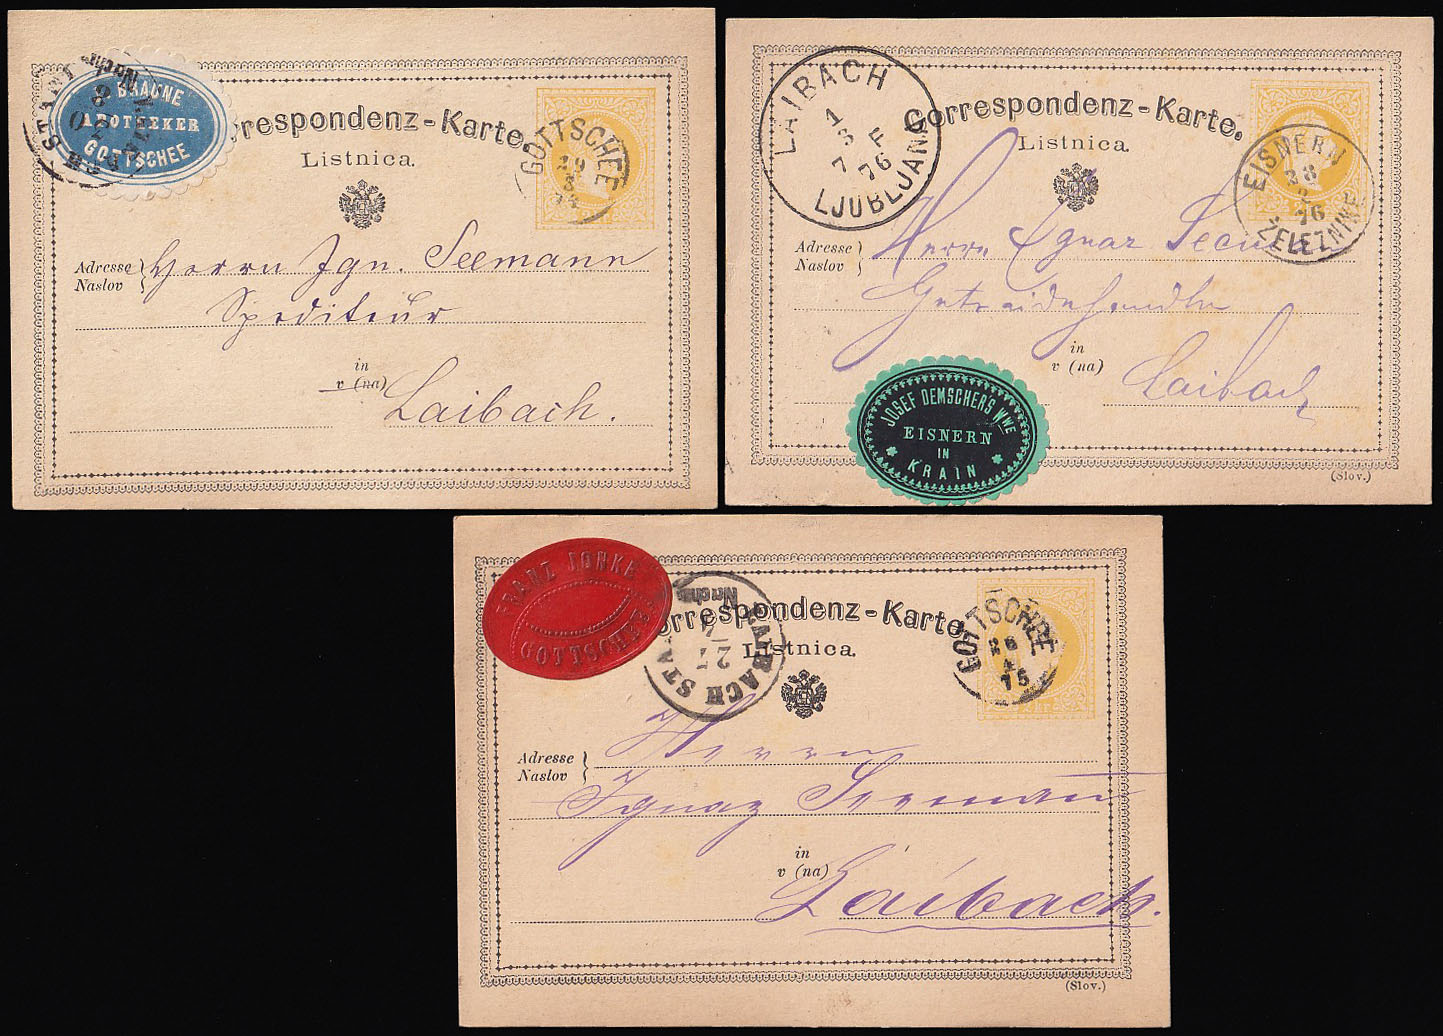 BRAUNE
APOTHEKER
GOTTSCHEE
Correspondenz-Karte.
Listnica.
GOTTSCHEE
Adresse
Naslov
Herrn Ign. Seemann
Spediteur
in
v (na)
Laibach.
LAIBACH
1
3
7 F
76
LJUBLJANA
Correspondenz-Karte.
Listnica.
EISNERN
28
2
76
ŽELEZNIKE
Adresse
Naslov
Herrn Ignaz
Getreidehandler
in
v (na)
Laibach
JOSEF DEMSCHERS WWE
EISNERN
IN
KRAIN
(Slov.)
FRANZ JONKE
GOTTSCHEE
LAIBACH STADT
27
4
Correspondenz-Karte.
Listnica.
GOTTSCHEE
26
4
75
Adresse
Naslov
Herrn
Ignaz Seemann
in
v (na)
Laibach.
(Slov.)